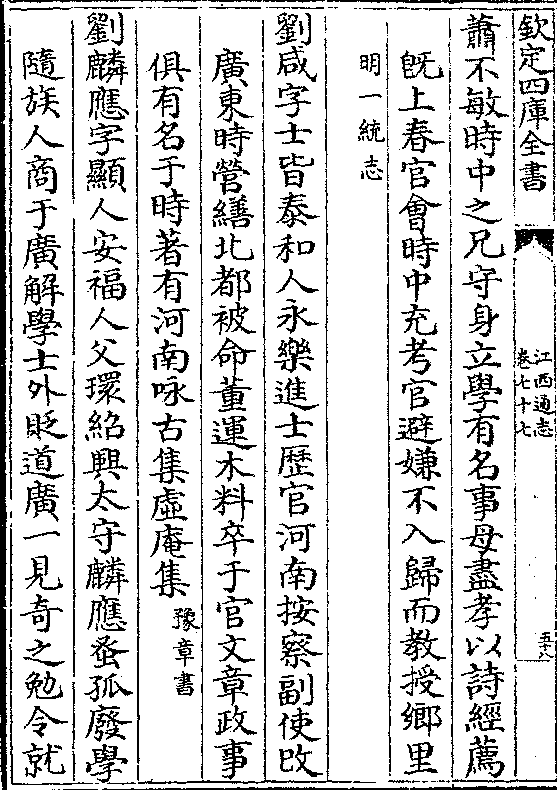 欽定四庫全書
江西通志
卷七十七
五十八
蕭不敏時中之兄守身立學有名事母盡孝以詩經薦
旣上春官會時中充考官避嫌不入歸而教授鄉里
明一統志
劉咸字士皆泰和人永樂進士歷官河南按察副使改
廣東時營繕北都被命董運木料卒于官文章政事
俱有名于時著有河南咏古集虛庵集豫章書
劉麟應字顯人安福人父環紹興太守麟應蚤孤廢學
隨族人商于廣解學士外貶道廣一見奇之勉令就